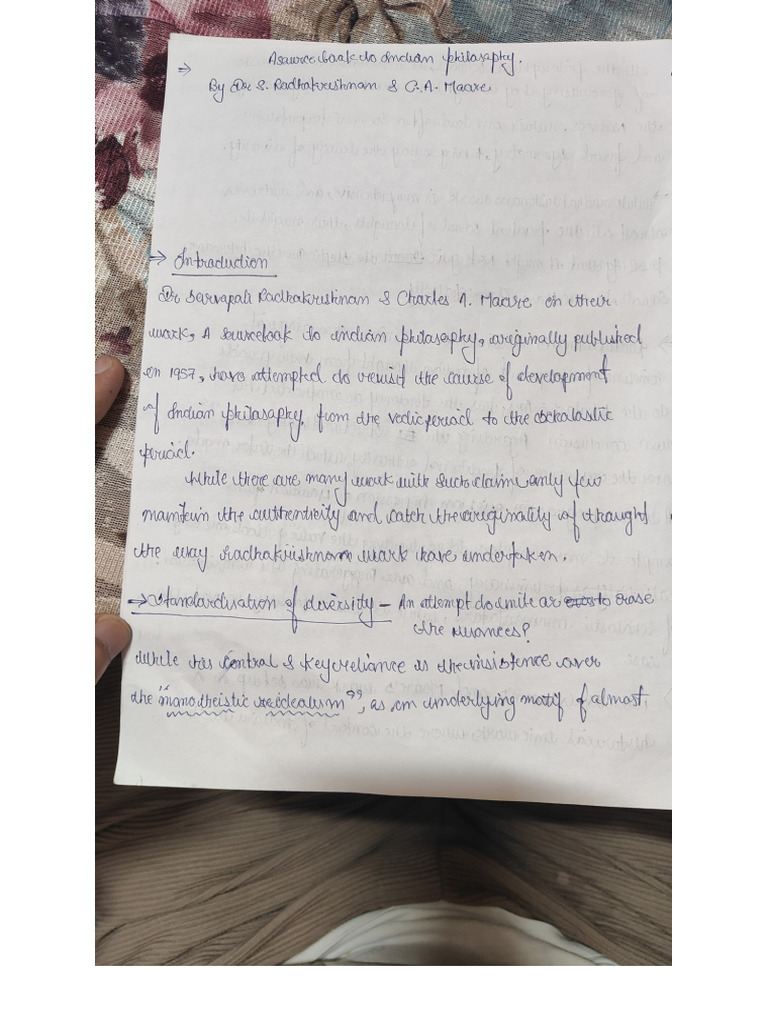 A source book to Indian philosophy.
⇒ By Dr S. Radhakrishnan & C.A. Moore
→ Introduction
Dr Sarvapali Radhakrishnan & Charles A. Moore on their
work, A sourcebook to indian philosophy, originally published
in 1957, have attempted to revisit the course of development
of Indian philosophy, from the vedic period to the scholastic
period.
While there are many work with such claim only few
maintain the authenticity and catch the originality of thought
the way Radhakrishnan work have undertaken.
→ Standardisation of diversity – An attempt to unite or erase
the nuances?
While his central & key reliance is the insistence over
the "monotheistic idealism", as an underlying motif of almost